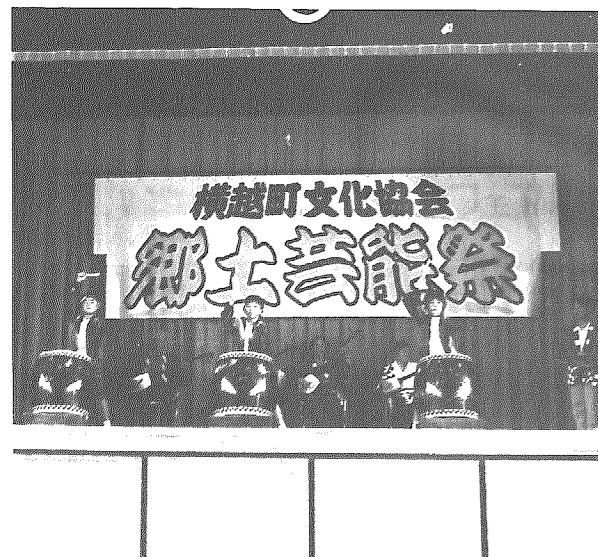 横越町文化協会
郷土芸能祭